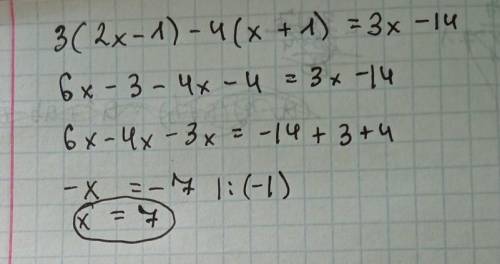 3(2x-1)-4(x+1)=3x-14
6x-3-4x-4=3x-14
6x-4x-3x=-14+3+4
-x=-7 |:(-1)
x=7